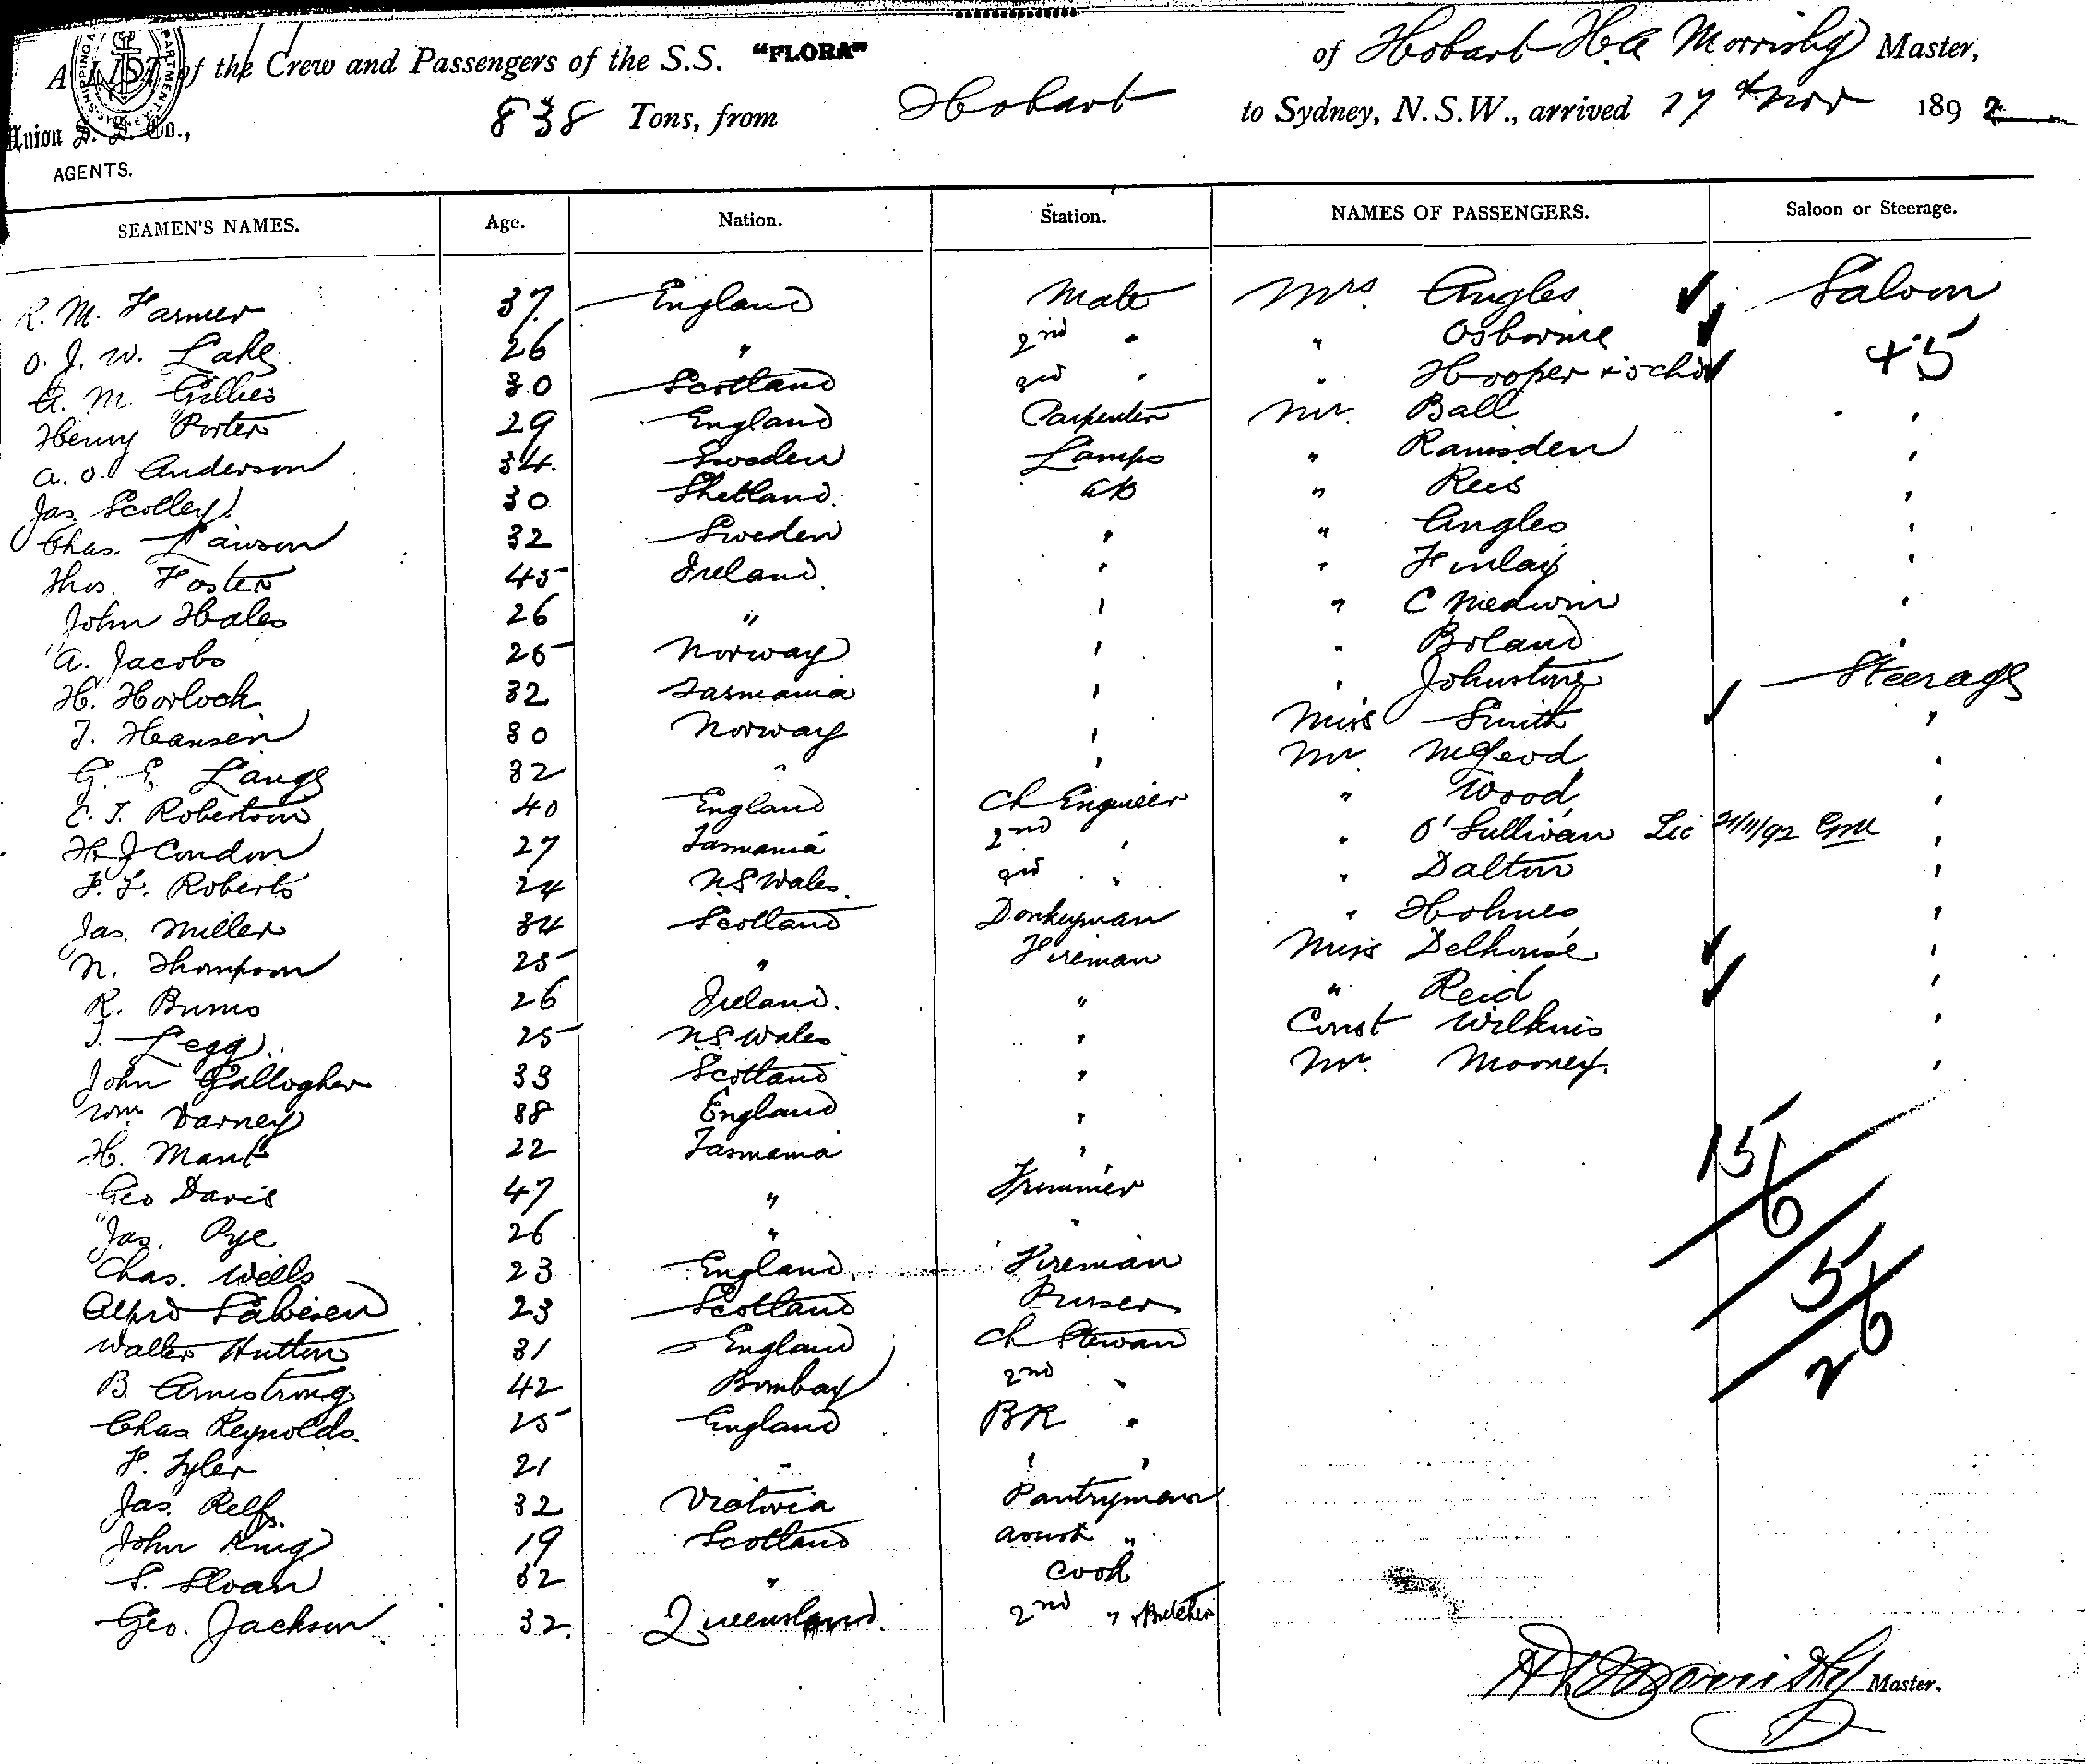 A LIST of the Crew and Passengers of the S.S. "FLORA" of Hobart H.A. Morrisby Master,
838 Tons, from Hobart to Sydney, N.S.W., arrived 27th Nov 1892
Union S. S. Co.,
AGENTS.
SEAMEN'S NAMES. Age. Nation. Station. NAMES OF PASSENGERS. Saloon or Steerage.
R. M. Farmer 37 England Mate Mrs. Angles Saloon
O. J. W. Lake 26 " 2nd " " Osborne +5
A. M. Gillies 30 Scotland 3rd " " Hooper
Henry Porter 29 England Carpenter Mr. Ball "
A. O. Anderson 34 Sweden Lamps " Ramsden "
Jas Scolley 30 Shetland AB " Reis "
Chas. Lawson 32 Sweden " " Angles "
Thos. Foster 45 Ireland " " Finlay "
John Hales 26 " " " C Medwin "
A. Jacobs 25 Norway " " Boland "
H. Horlock 32 Tasmania " " Johnstone Steerage
T. Hansen 30 Norway " Miss Smith "
G. E. Lange 32 " " Mr McLeod "
C. T. Robertson 40 England Ch Engineer " Wood "
H J Condon 27 Tasmania 2nd " " O'Sullivan Lic 21/11/92 "
F. L. Roberts 24 N S Wales 3rd " " Dalton "
Jas. Miller 34 Scotland Donkeyman " Holmes "
N. Thompson 25 " Fireman Miss Delhouse "
R. Burns 26 Ireland. " " Reid "
J. Legg 25 N S Wales " Const Wilkins "
John Gallogher 33 Scotland " Mr. Mooney. "
Wm Darney 38 England "
H. Mant 22 Tasmania " 15
Geo Davis 47 " Trimmer 6
Jas. Pye 26 " "
Chas. Wells 23 England Fireman 5
Alfrd Salvesen 23 Scotland Purser
Walter Hutton 31 England Ch Steward 26
B. Armstrong 42 Bombay 2nd "
Chas Reynolds 25 England BR "
F. Tyler 21 " " "
Jas. Relf 32 Victoria Pantryman
John King 19 Scotland Assist "
S. Sloan 32 " Cook
Geo. Jackson 32 Queensland 2nd " & Butcher
H A Morrisby Master.